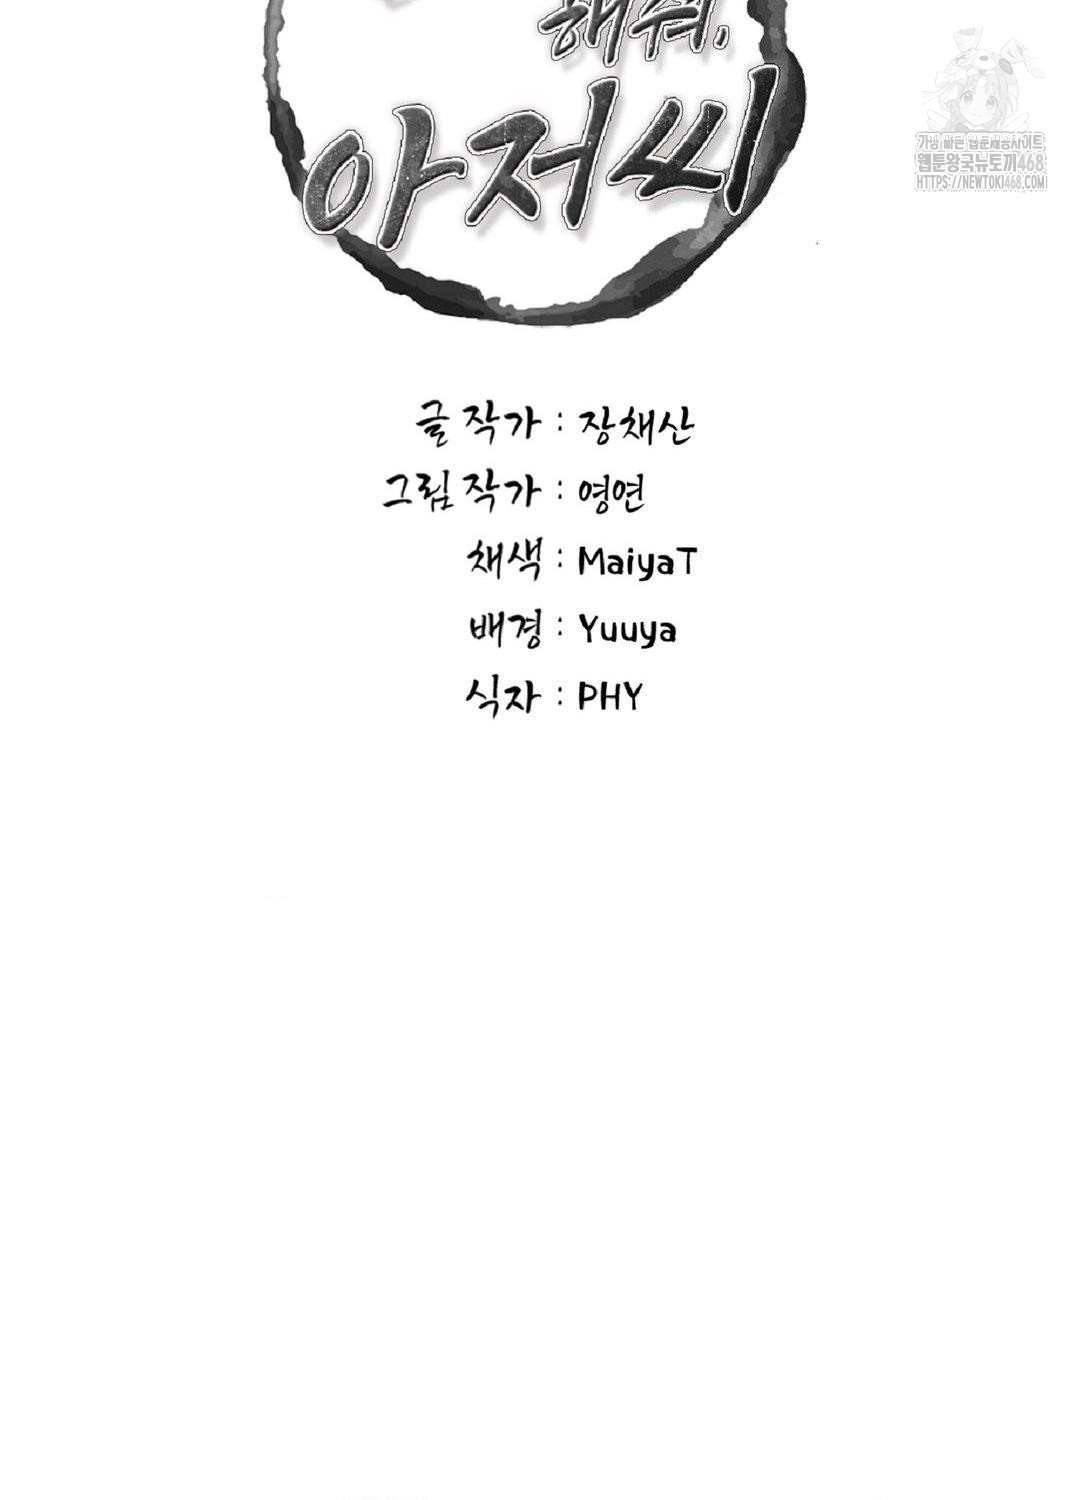 해줘,
아저씨
가장 빠른 웹툰제공사이트
웹툰왕국뉴토끼468
HTTPS://NEWTOKI468.COM
글 작가 : 장채산
그림 작가 : 영연
채색 : MaiyaT
배경 : Yuuya
식자 : PHY